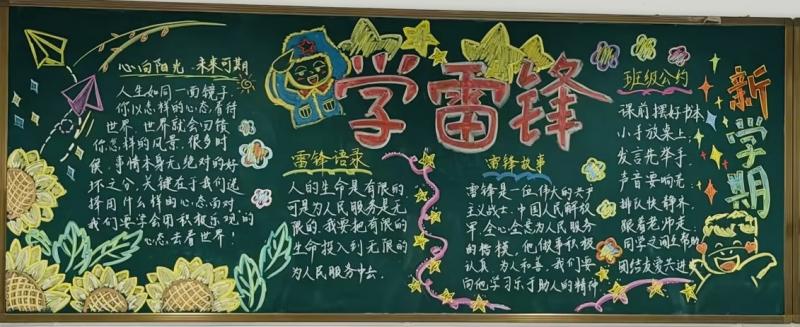 心向阳光 未来可期
人生如同一面镜子
你以怎样的心态看待
世界，世界就会回馈
你怎样的风景，很多时
候，事情本身无绝对的好
坏之分，关键在于我们选
择用什么样的心态面对
我们要学会用积极乐观的
心态去看世界！
学雷锋
雷锋语录
人的生命是有限的
可是为人民服务是无
限的，我要把有限的
生命投入到无限的
为人民服务中去。
雷锋故事
雷锋是一位伟大的共产
主义战士，中国人民解放
军，全心全意为人民服务
的楷模，他做事积极
认真，为人和善，我们要
向他学习乐于助人的精神
班级公约
课前摆好书本
小手放桌上，
发言先举手，
声音要响亮
排队快静齐，
跟着老师走；
同学之间互帮助
团结友爱共进步
新学期